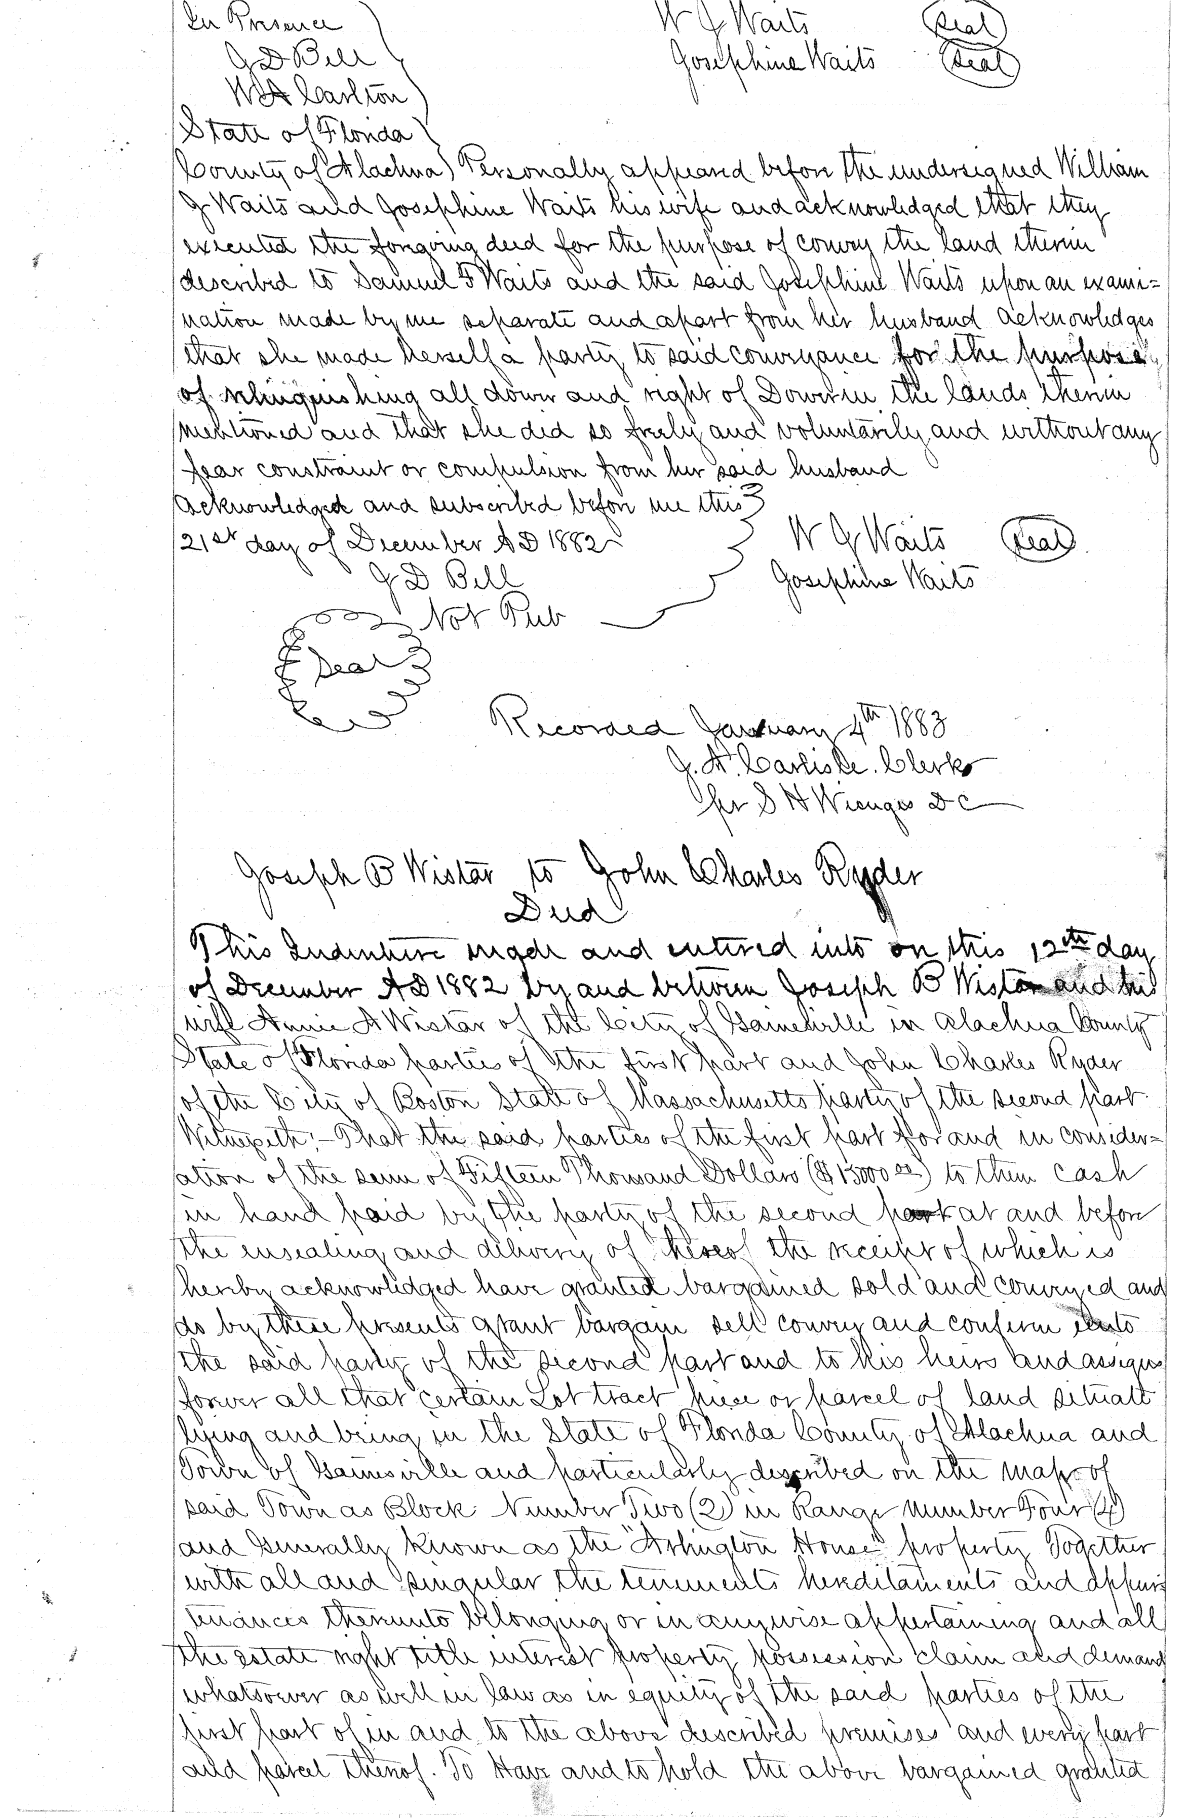 In Presence
W J Waits Seal
J D Bell
Josephine Waits Seal
W A Carlton
State of Florida
County of Alachua Personally appeared before the undersigned William
J Waits and Josephine Waits his wife and acknowledged that they
executed the forgoing deed for the purpose of convey the land therein
described to Samuel F Waits and the said Josephine Waits upon an exami=
nation made by me separate and apart from her husband acknowledges
that she made herself a party to said conveyance for the purpose
of relinquishing all dower and right of Dower in the lands therein
mentioned and that she did so freely and voluntarily and without any
fear constraint or compulsion from her said husband
Acknowledged and subscribed before me this
21st day of December AD 1882
W J Waits Seal
J D Bell
Josephine Waits
Not Pub
Seal
Recorded January 4th 1883
J. A. Carlisle. Clerk
per S H Wienges DC
Joseph B Wistar to John Charles Ryder
Deed
This Indenture made and entered into on this 12th day
of December AD 1882 by and between Joseph B Wistar and his
wife Annie A Wistar of the City of Gainesville in Alachua County
State of Florida parties of the first part and John Charles Ryder
of the City of Boston State of Massachusetts party of the second part
Witnesseth:- That the said parties of the first part for and in consider=
ation of the sum of Fifteen Thousand Dollars ($15000 00) to them cash
in hand paid by the party of the second part at and before
the ensealing and delivery of hereof the receipt of which is
hereby acknowledged have granted bargained sold and conveyed and
do by these presents grant bargain sell convey and confirm unto
the said party of the second part and to his heirs and assigns
forever all that certain Lot tract piece or parcel of land situate
lying and being in the State of Florida County of Alachua and
Town of Gainesville and particularly described on the map of
said Town as Block Number Two (2) in Range Number Four (4)
and Generally known as the "Arlington House" property Together
with all and singular the tenements hereditaments and appur
tenances thereunto belonging or in anywise appertaining and all
the estate right title interest property possession claim and demand
whatsoever as well in law as in equity of the said parties of the
first part of in and to the above described premises and every part
and parcel thereof. To Have and to hold the above bargained granted